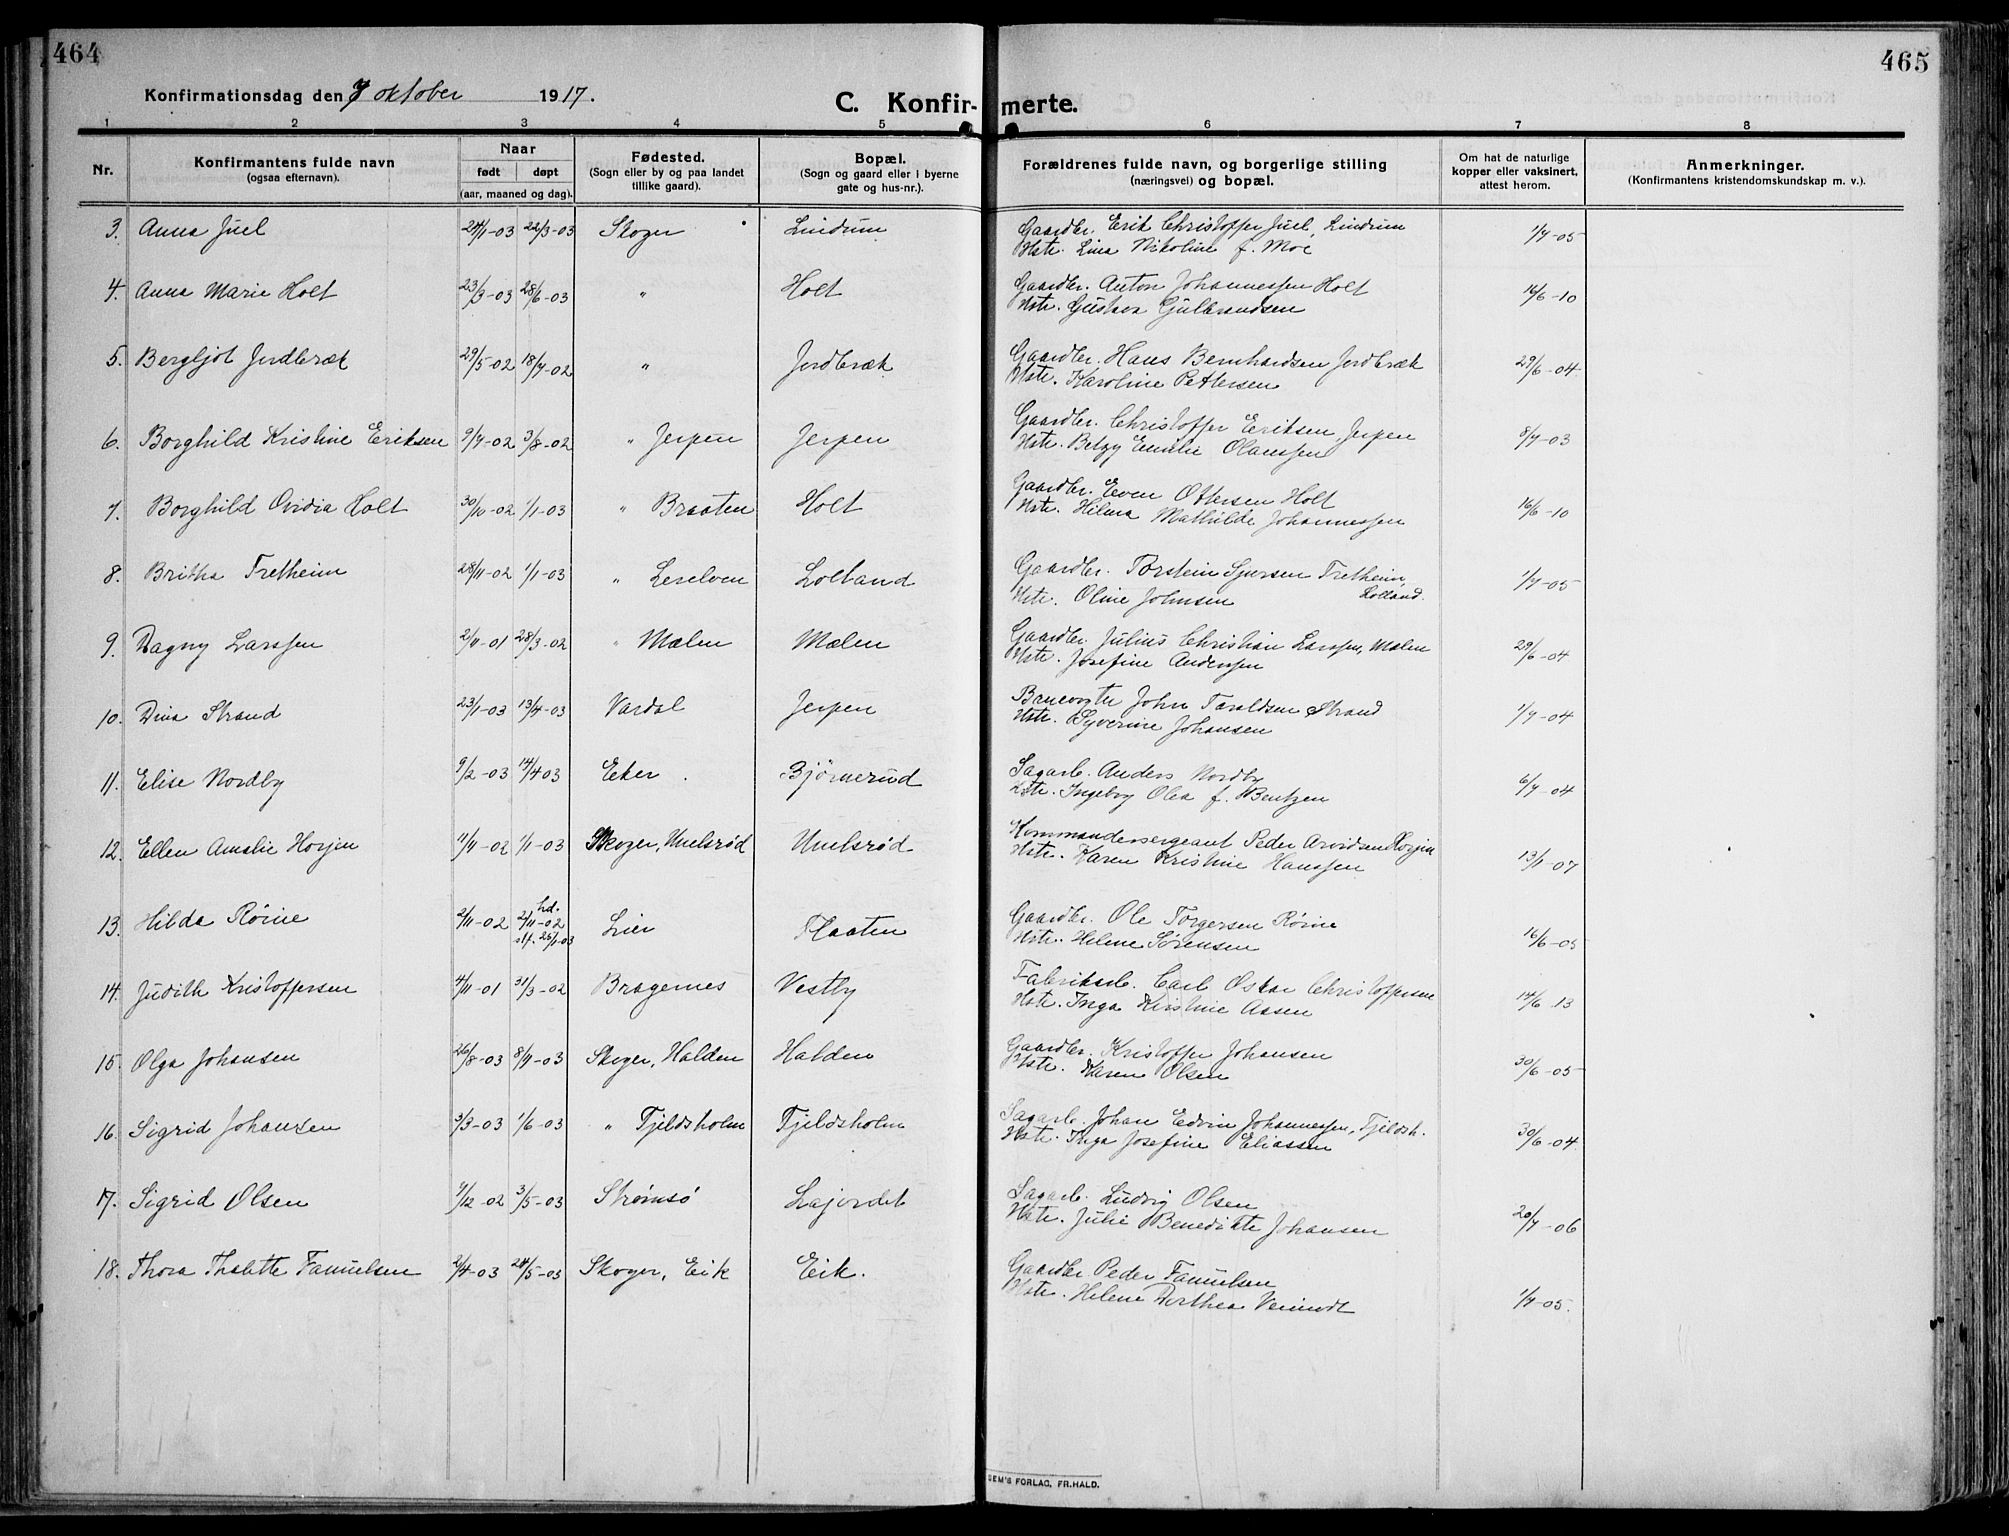 464
465
Konfirmationsdag den 7 oktober 1917.
C. Konfirmerte.
1 2 3 4 5 6 7 8
Nr.
Konfirmantens fulde navn
(ogsaa efternavn).
Naar
født døpt
(aar, maaned og dag).
Fødested.
(Sogn eller by og paa landet
tillike gaard).
Bopæl.
(Sogn og gaard eller i byerne
gate og hus-nr.).
Forældrenes fulde navn, og borgerlige stilling
(næringsvei) og bopæl.
Om hat de naturlige
kopper eller vaksinert,
attest herom.
Anmerkninger.
(Konfirmantens kristendomskundskap m. v.).
3. Anna Juel 24/1-03 22/3-03 Skoger Lindrum Gaardbr. Erik Christoffer Juel, Lindrum 1/7-05
Hstr. Lina Nikoline f. Moe
4. Anna Marie Holt 23/3-03 28/6-03 " Holt Gaardbr. Anton Johannessen Holt 16/6-10
Hstr. Gustava Gulbrandsen
5. Bergljot Jordbræk 29/5-02 18/7-02 " Jordbræk Gaardbr. Hans Bernhardsen Jordbræk 29/6-04
Hstr. Karoline Pettersen
6. Borghild Kristine Eriksen 9/7-02 3/8-02 " Jerpen Jerpen Gaardbr. Christoffer Eriksen, Jerpen 8/7-03
Hstr. Betzy Emilie Olaussen
7. Borghild Ovidia Holt 30/10-02 1/1-03 " Braaten Holt Gaardbr. Even Ottersen Holt 16/6-10
Hstr. Hilma Mathilde Johannessen
8. Britha Tretheim 28/11-02 1/1-03 " Leirelven Lolland Gaardbr. Torstein Sjursen Tretheim, 1/7-05
Hstr. Oline Johnsen Lolland.
9. Dagny Larssen 2/11-01 28/3-02 " Mælen Mælen Gaardbr. Julius Christian Larssen, Mælen 29/6-04
Hstr. Josefine Anderssen
10. Dina Strand 23/1-03 13/4-03 Vardal Jerpen Banevogter John Taraldsen Strand 1/7-04
Hstr. Syverine Johansen
11. Elise Nordby 9/2-03 14/4 03 Eker. Bjørnerud Sagarb. Anders Nordby 6/7-04
Hstr. Ingeborg Olea f. Bentzen
12. Ellen Amalie Horjen 11/11-02 1/1-03 Skoger, Unelsrød Unelsrød Kommandersergeant Peder Arvidsen Horjen 13/1-07
Hstr. Karen Kristine Hanssen
13. Hilda Røine 2/11-02 hd. 2/11-02 Lier Flaaten Gaardbr. Ole Torgersen Røine 16/6-05
st f. 26/1-03 Hstr. Helene Sørensen
14. Judith Kristoffersen 4/11-01 31/3-02 Bragernes Vestby Fabrikarb. Carl Oskar Christoffersen 14/6 13
Hstr. Inga Kristine Aasen
15. Olga Johansen 26/8-03 8/11-03 Skoger, Halden Halden Gaardbr. Kristoffer Johansen 30/6-05
Hstr. Karen Olsen
16. Sigrid Johansen 3/3-03 1/6-03 " Fjeldsholm Fjeldsholm Sagarb. Johan Edvin Johannessen, Fjeldsh. 30/6-04
Hstr. Inga Josefine Eliassen
17. Sigrid Olsen 7/12-02 3/5-03 Strømsø Lajordet Sagarb. Ludvig Olsen 20/7-06
Hstr. Julie Benedikte Johansen
18. Thora Thalette Fanuelsen 2/4-03 24/5-03 Skoger, Eik Eik. Gaardbr Peder Fanuelsen 1/7-05.
Hstr. Helene Dorthea
SEM'S FORLAG, FR. HALD.